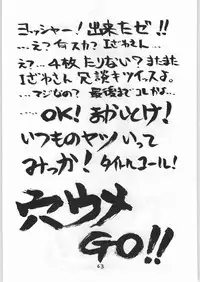 ヨッシャー！出来たゼ!!
…え？何スカ？Iざわさん…
え？…4枚たりない？またまた
Iざわさん冗談キツイっスよ。
…マジなの？最後までコレかよ…
…OK！まかしとけ！
いつものヤツいって
みっか！タイトルコール！
穴ウメ
GO!!
63